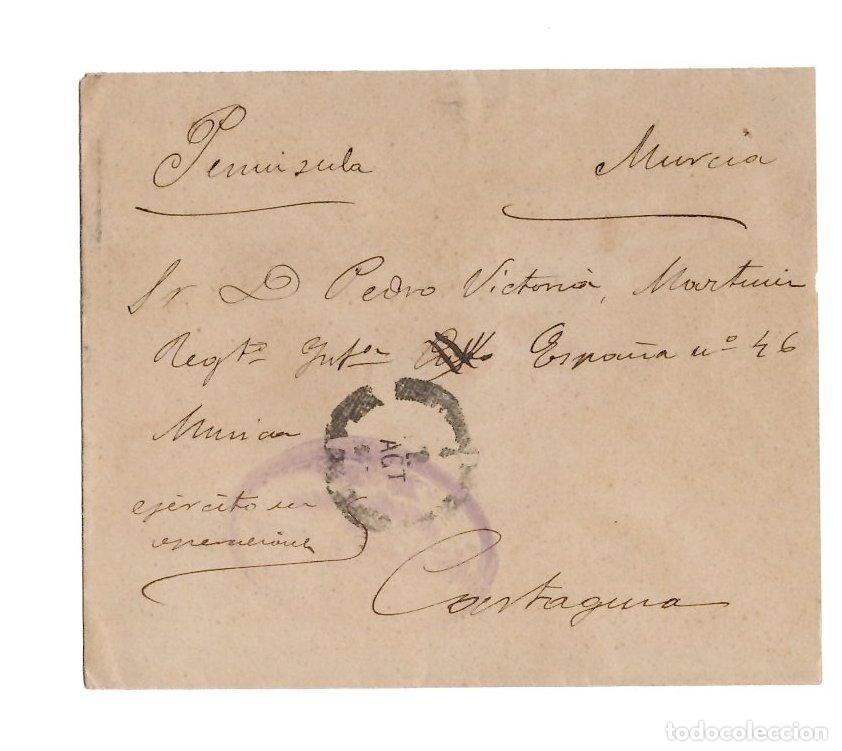 Peninsula Murcia
Sr. D Pedro Victoria, Martinez
Regto Infan España nº 46
Murcia
AGT
ejército en
operaciones
Cartagena
todocoleccion